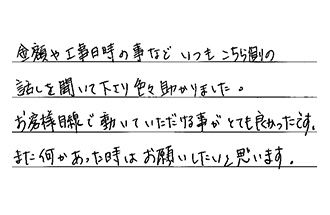 金額や工事日時の事など いつもこちら側の
話しを聞いて下さり色々助かりました。
お客様目線で動いていただける事がとても良かったです。
また何かあった時はお願いしたいと思います。